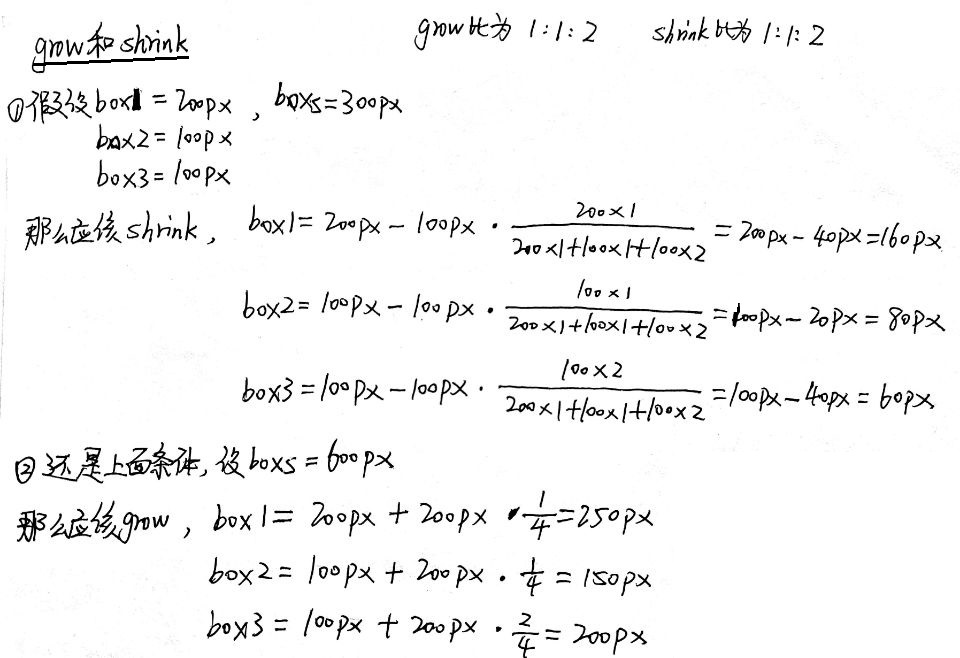 grow和shrink
grow比为 1:1:2 shrink比为 1:1:2
①假设box1=200px, boxs=300px
box2=100px
box3=100px
那么应该shrink, box1=200px-100px·(200×1)/(200×1+100×1+100×2)=200px-40px=160px
box2=100px-100px·(100×1)/(200×1+100×1+100×2)=100px-20px=80px
box3=100px-100px·(100×2)/(200×1+100×1+100×2)=100px-40px=60px
②还是上面条件,设boxs=600px
那么应该grow, box1=200px+200px·1/4=250px
box2=100px+200px·1/4=150px
box3=100px+200px·2/4=200px